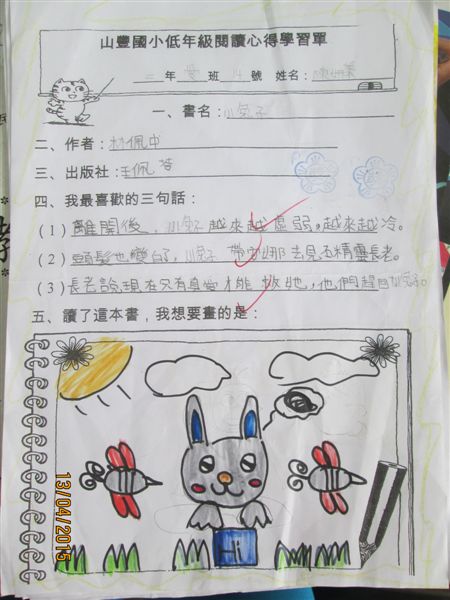 山豐國小低年級閱讀心得學習單
二年愛班 號 姓名：
一、書名：小兔子
二、作者：林佩
三、出版社：王佩
四、我最喜歡的三句話：
(1) 離開後，小兔子越來越虛弱，越來越冷。
(2) 頭髮也變白了，小兔子帶 娜去見石精靈長老。
(3) 長老說現在只有真愛才能救她，他們趕回小兔子。
五、讀了這本書，我想要畫的是：
Hi
13/04/2015